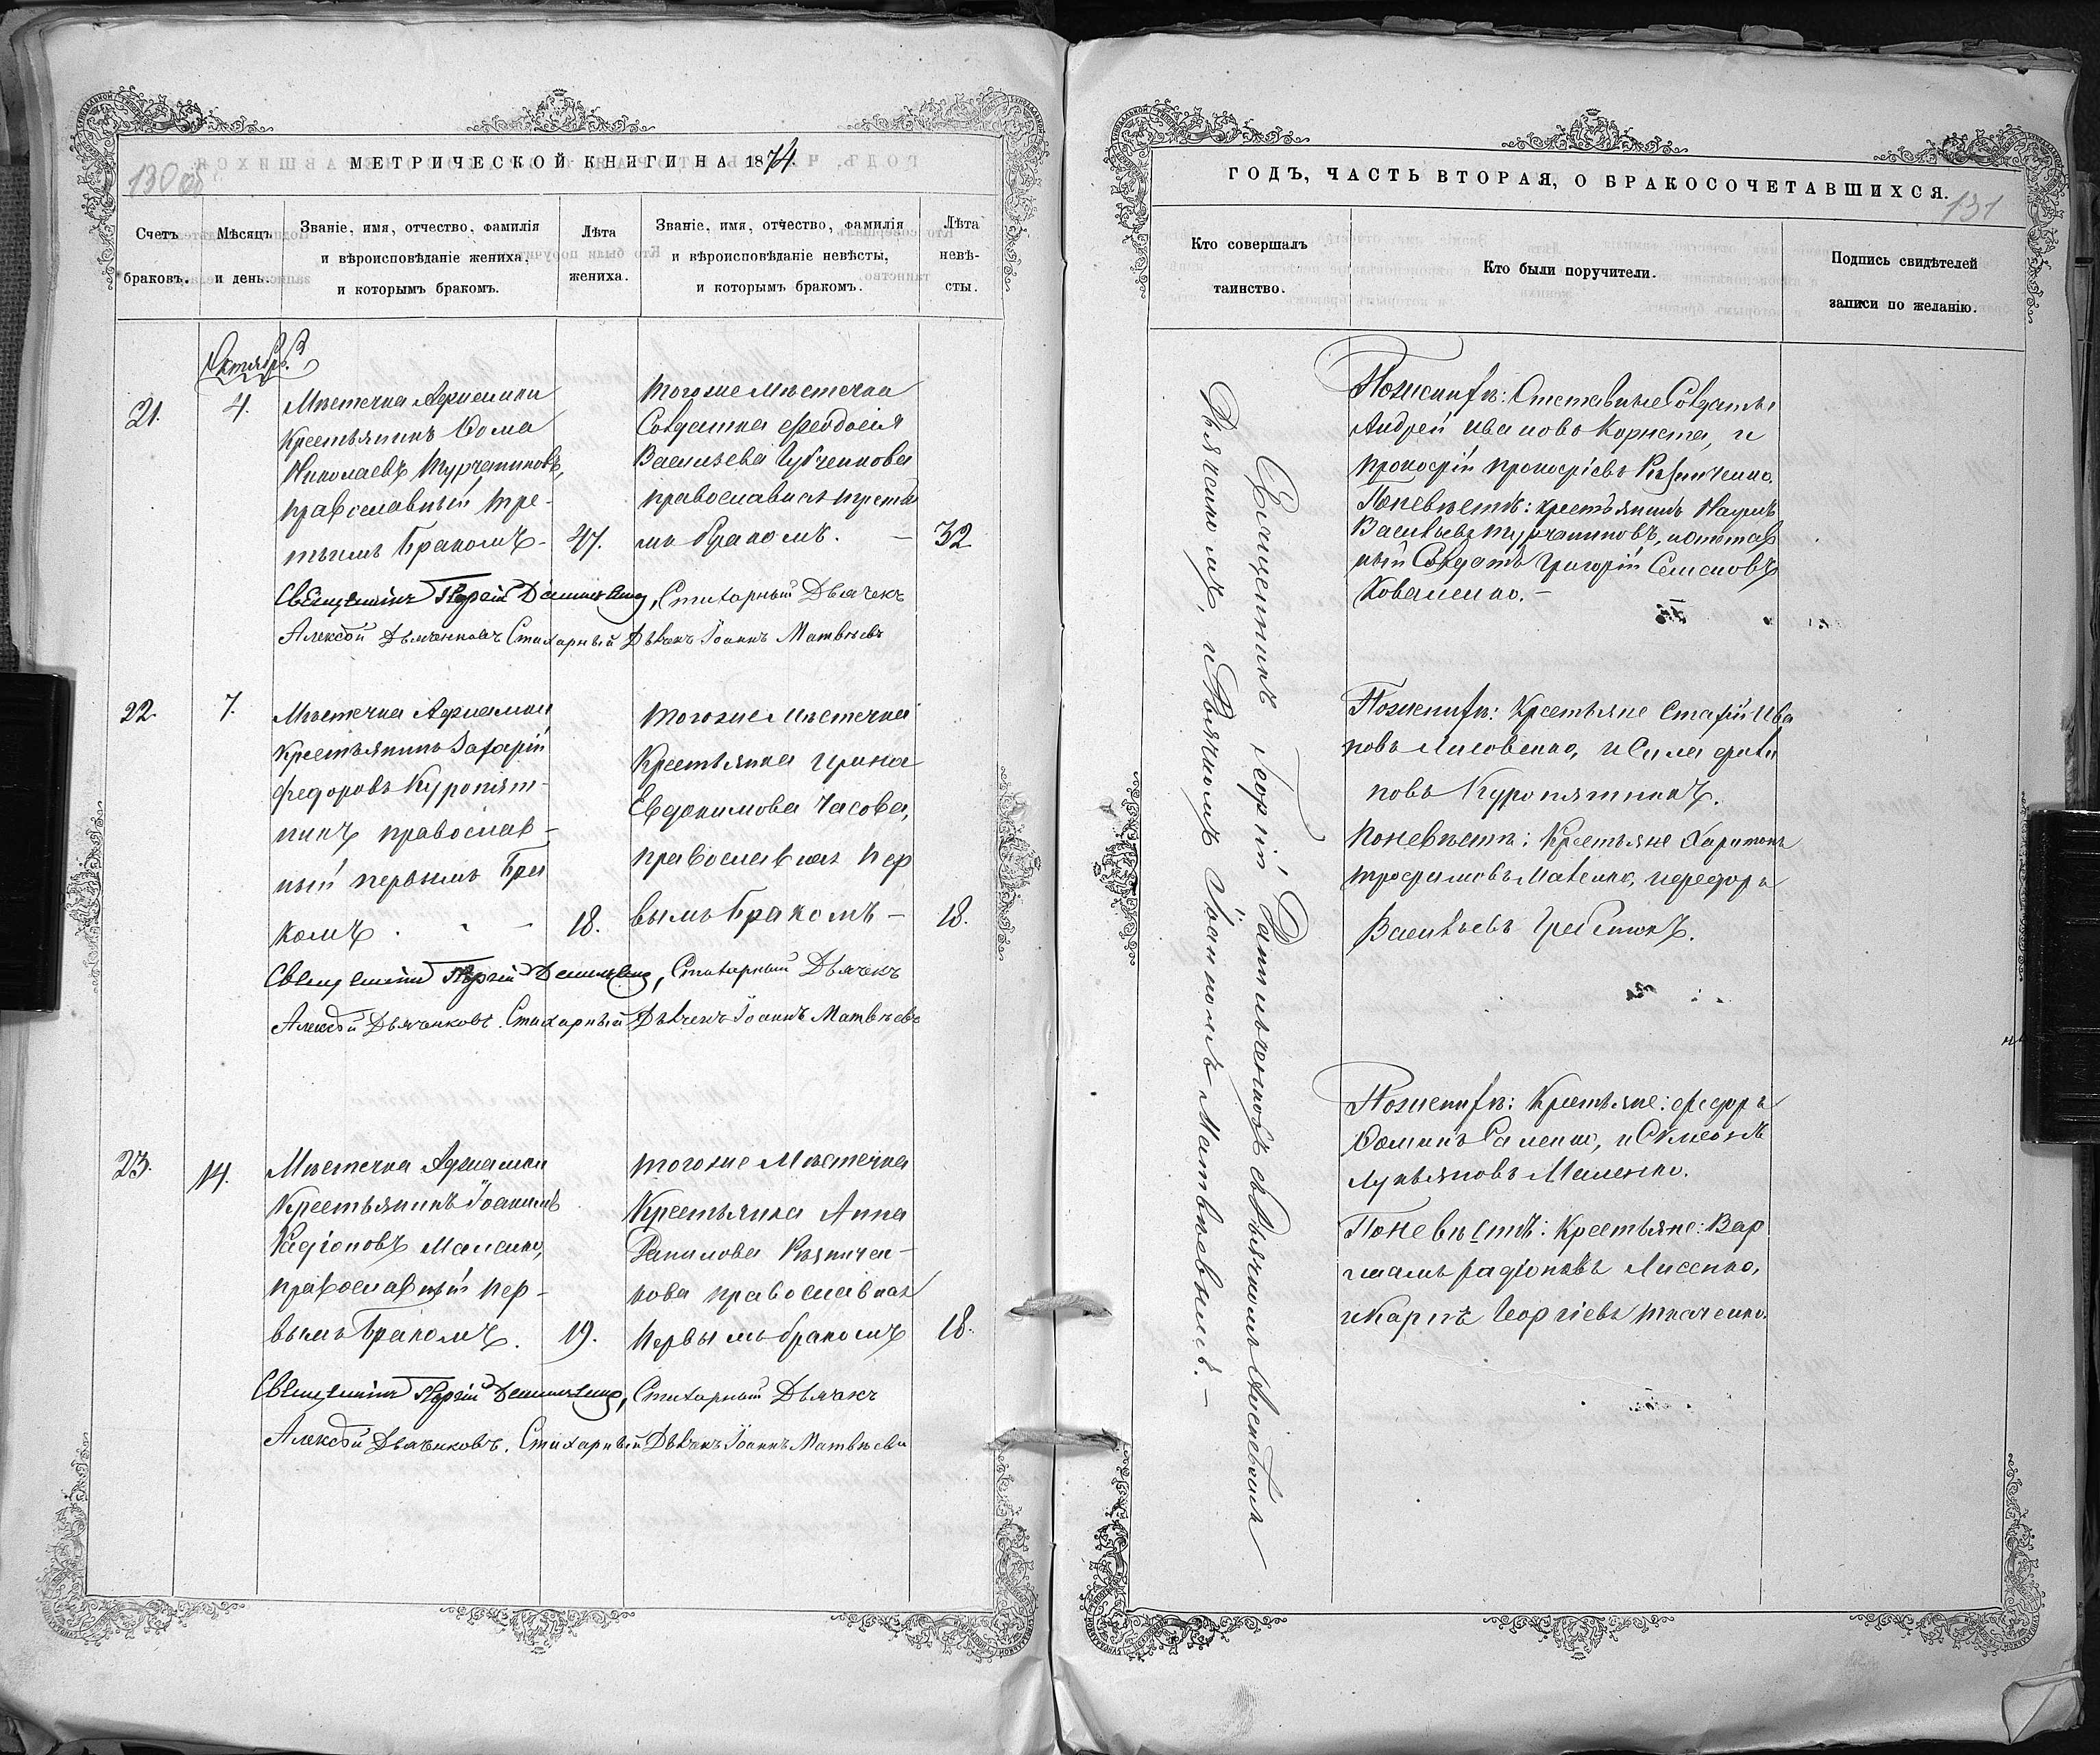 МЕТРИЧЕСКОЙ КНИГИ НА 1874
130 об
Счетъ браковъ.
Мѣсяцъ и день.
Званіе, имя, отчество, фамилія
и вѣроисповѣданіе жениха,
и которымъ бракомъ.
Лѣта жениха.
Званіе, имя, отчество, фамилія
и вѣроисповѣданіе невѣсты,
и которымъ бракомъ.
Лѣта невѣ-
сты.
Октябрь.
21.
4.
Мѣстечка Аджамки
Крестьянинъ Ѳома
Николаевъ Турчаниновъ,
православный тре-
тьимъ бракомъ
47.
тогоже Мѣстечка
Солдатка Феодосія
Васильева Губченкова
православная третьи
мъ бракомъ. —
32
Священникъ Георгій Данильченко, Стихарный Дьячекъ
Алексѣй Дьяченковъ Стихарный Дьячекъ Іоаннъ Матвѣевъ
22.
7.
Мѣстечка Аджамки
Крестьянинъ Захарій
Федоровъ Куропят-
никъ православ-
ный первымъ бра
комъ
18.
тогоже Мѣстечка
Крестьянка Ирина
Евдокимова Часова,
православная пер
вымъ бракомъ —
18.
Священникъ Георгій Данильченко, Стихарный Дьячекъ
Алексѣй Дьяченковъ. Стихарный Дьячекъ Іоаннъ Матвѣевъ
23.
14.
Мѣстечка Аджамки
Крестьянинъ Іоакимъ
Радіоновъ Маленко,
православный пер-
вымъ бракомъ.
19.
тогоже Мѣстечка
Крестьянка Анна
Данилова Рѣзничен-
кова православная
первымъ бракомъ
18.
Священникъ Георгій Данильченко, Стихарный Дьячекъ
Алексѣй Дьяченковъ. Стихарный Дьячекъ Іоаннъ Матвѣевъ
ГОДЪ, ЧАСТЬ ВТОРАЯ, О БРАКОСОЧЕТАВШИХСЯ.
131
Кто совершалъ
таинство.
Кто были поручители.
Подпись свидѣтелей
записи по желанію.
Священникъ Георгій Данильченковъ съ Дьячкомъ Алексѣемъ
Дьяченкомъ, и Дьячкомъ Іоанномъ Матвѣевымъ. —
Поженихѣ: Отставные Солдаты
Андрей Ивановъ Корнета, и
Прокофій Прокофіевъ Рѣзниченко.
Поневѣстѣ: крестьянинъ Наумъ
Васильевъ Турчаниновъ, и отстав
ный Солдатъ Григорій Семеновъ
Коваленко. —
Поженихѣ: Крестьяне Стахій Ива
новъ Лисовенко, и Сила
новъ Куропятникъ.
Поневѣстѣ: Крестьяне Харитонъ
Трофимовъ, и Федоръ
Васильевъ.
Поженихѣ: Крестьяне: Федоръ
Ѳоминъ, и Симеонъ
Лукьяновъ Маленко.
Поневѣстѣ: Крестьяне: Вар
лаамъ Радіоновъ,
и Карпъ Георгіевъ Ткаченко.